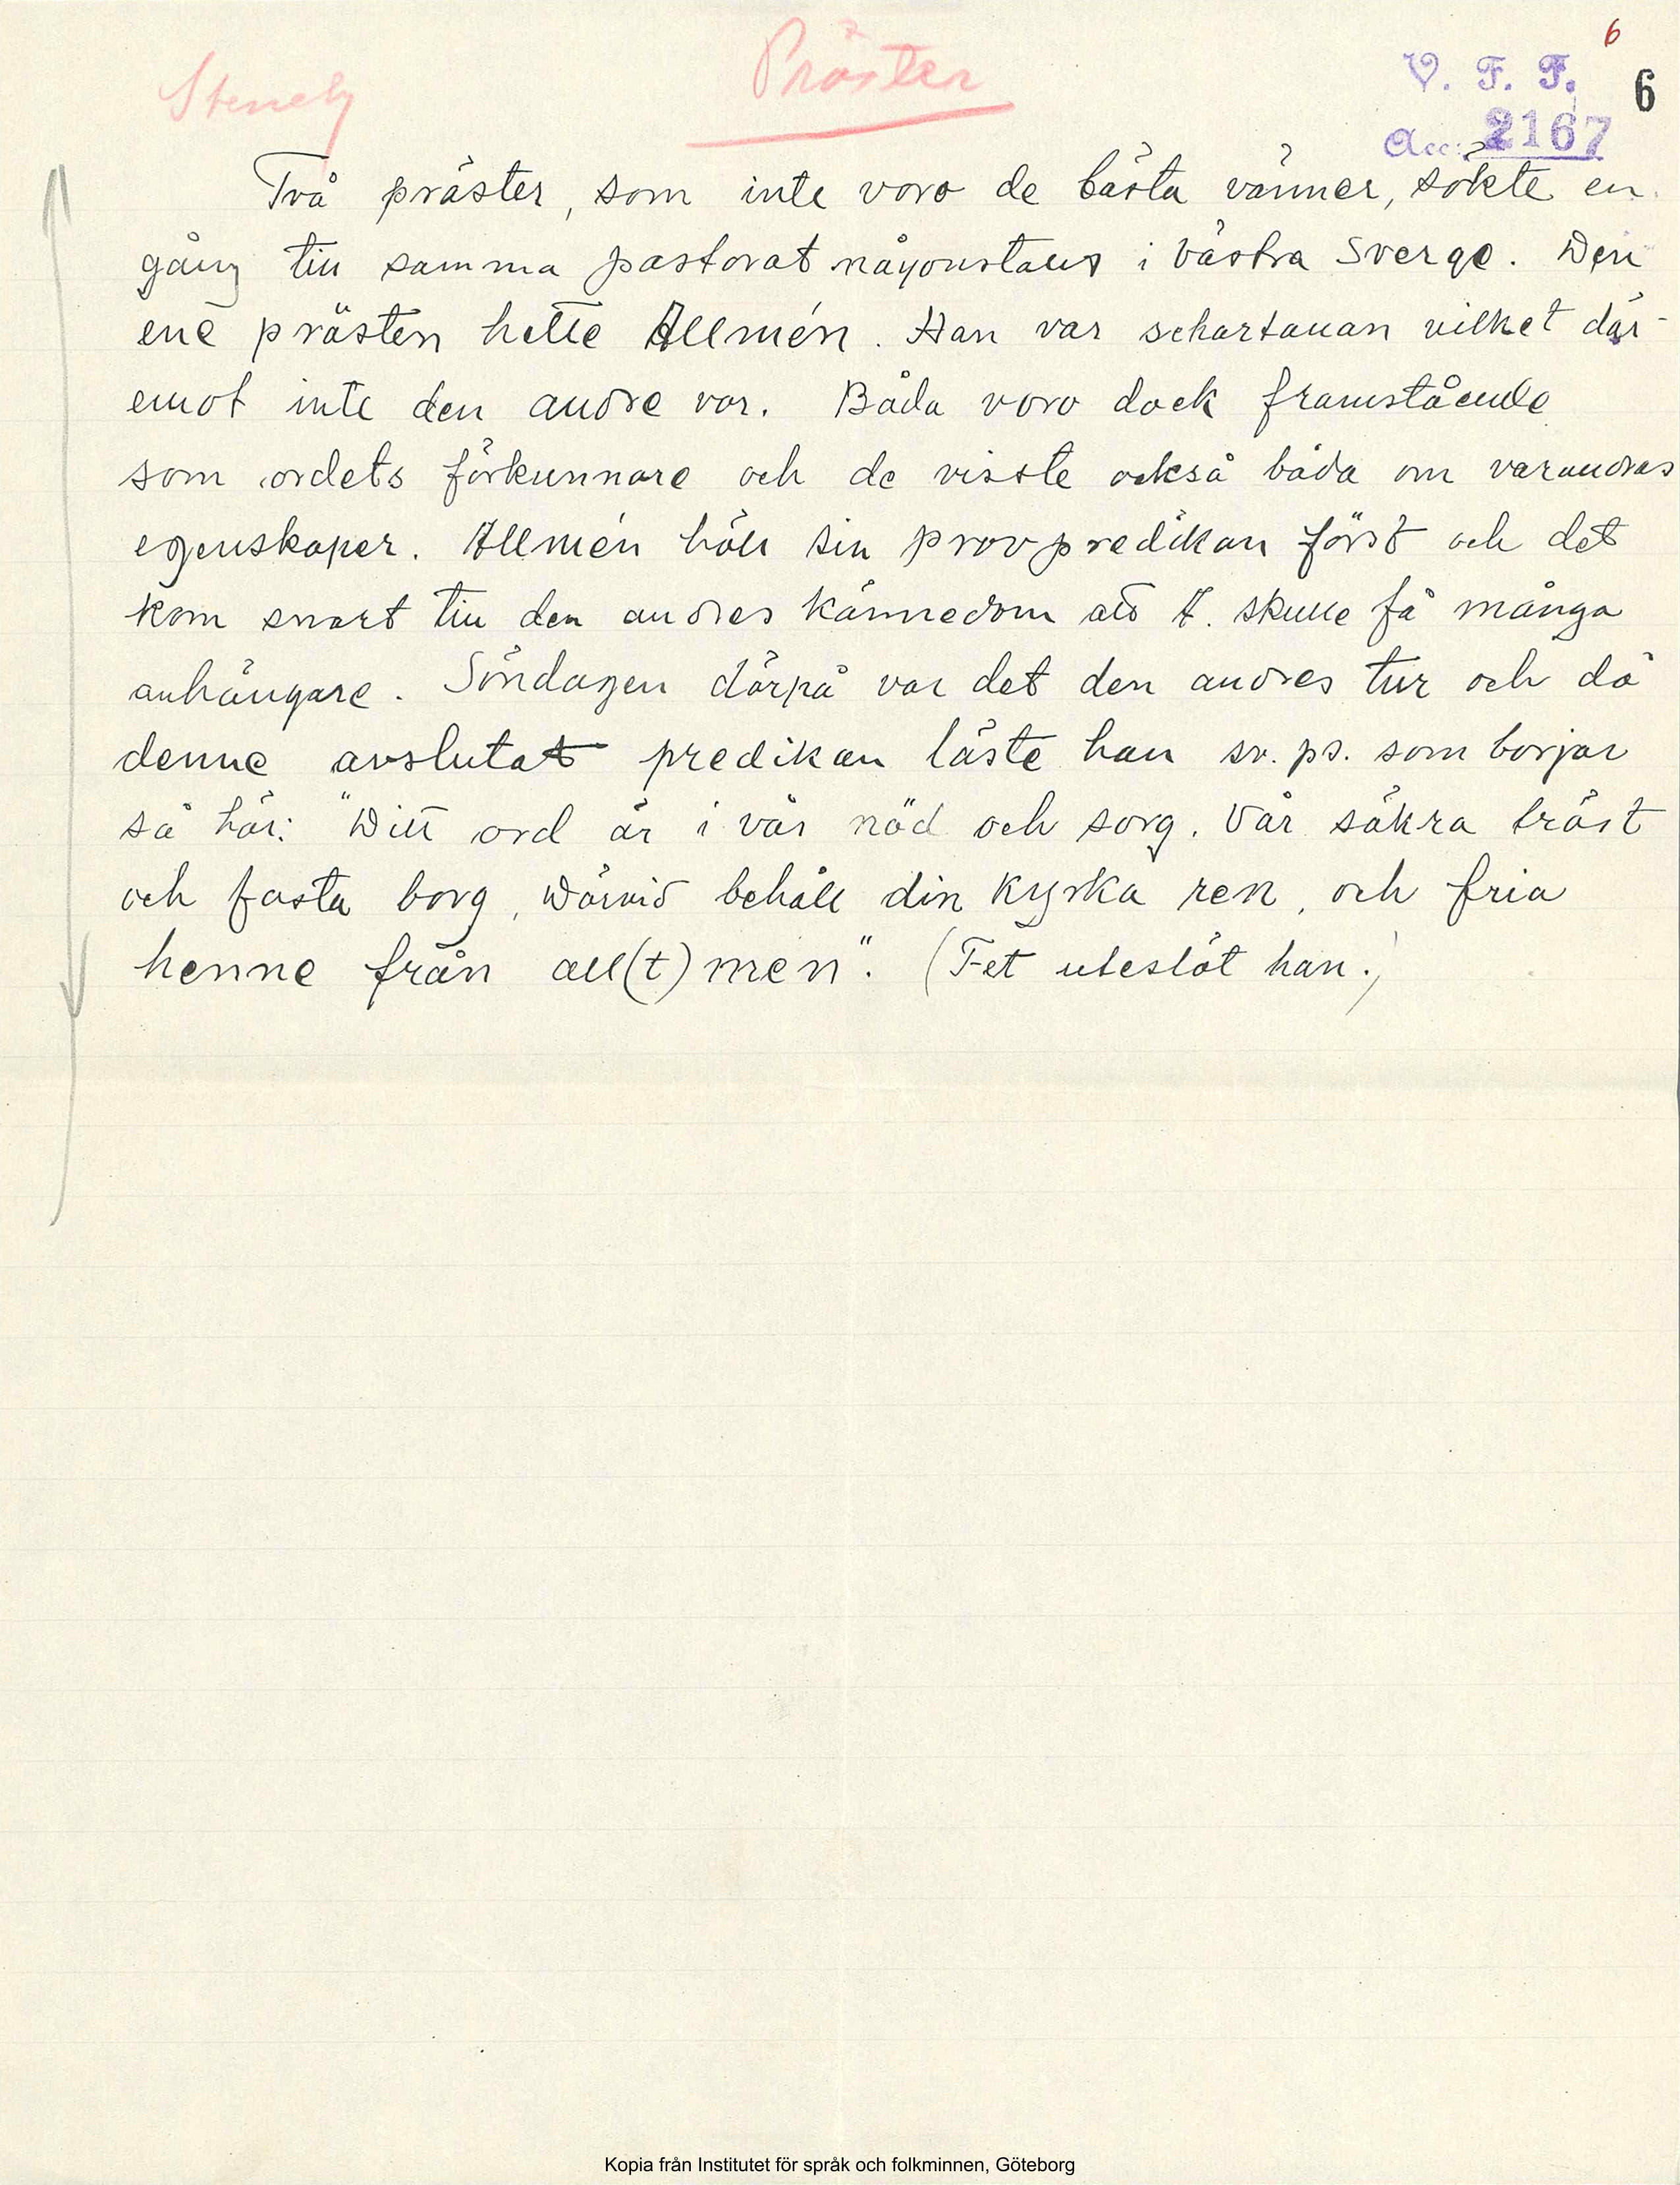 6
Präster
V. F. F. 6
Acc: 2167
Två präster, som inte voro de bästa vänner, sökte en
gång till samma pastorat någonstans i västra Sverge. Den
ene prästen hette Allmén. Han var schartauan vilket där-
emot inte den andre var. Båda voro dock framstående
som ordets förkunnare och de visste också båda om varandras
egenskaper. Allmén höll sin provpredikan först och det
kom snart till den andres kännedom att A. skulle få många
anhängare. Söndagen därpå var det den andres tur och då
denne avslutat predikan läste han sv. ps. som börjar
så här: "Ditt ord är i vår nöd och sorg. Vår säkra tröst
och fasta borg, Därvid behåll din kyrka ren, och fria
henne från all(t)men". (T-et uteslöt han.)
Kopia från Institutet för språk och folkminnen, Göteborg